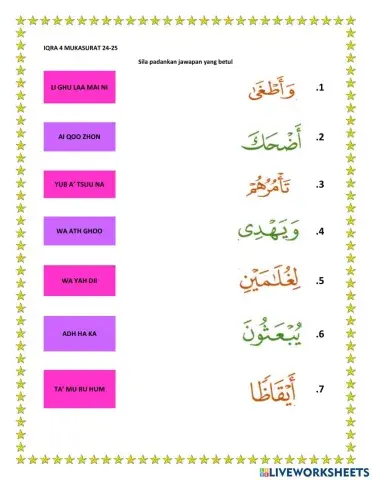 IQRA 4 MUKASURAT 24-25
Sila padankan jawapan yang betul
LI GHU LAA MAI NI وَأَطْغَىٰ .1
AI QOO ZHON أَضْحَكَ .2
YUB A' TSUU NA تَأْمُرُهُمْ .3
WA ATH GHOO وَيَهْدِى .4
WA YAH DII لِغُلَـٰمَيْنِ .5
ADH HA KA يُبْعَثُونَ .6
TA' MU RU HUM أَيْقَاظًا .7
LIVEWORKSHEETS